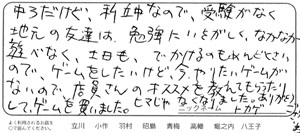 中3だけど、私立中なので、受験がなく
地元の友達は、勉強にいそがしく、なかなか
遊べなく、土日も、でかけるのもめんどくさい
ので、ゲームをしたいけど、今、やりたいゲームが
ないので、店員さんのオススメを教えてもらたり
して、ゲームを買いました。ヒマじゃなくなりました。ありがとう
ニックネーム トカゲ
よく利用されるお店を
○で囲んでください。
立川 小作 羽村 昭島 青梅 高幡 堀之内 八王子